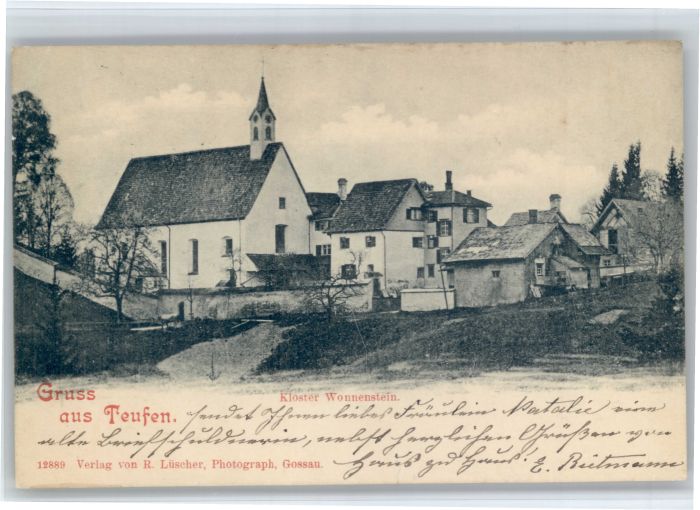 Kloster Wonnenstein.
Gruss
aus Teufen.
sendet Ihnen liebes Fräulein Natalie eine
alte Briefschuldnerin, nebst herzlichen Grüßen von
Haus zu Haus! E.
12889 Verlag von R. Lüscher, Photograph, Gossau.